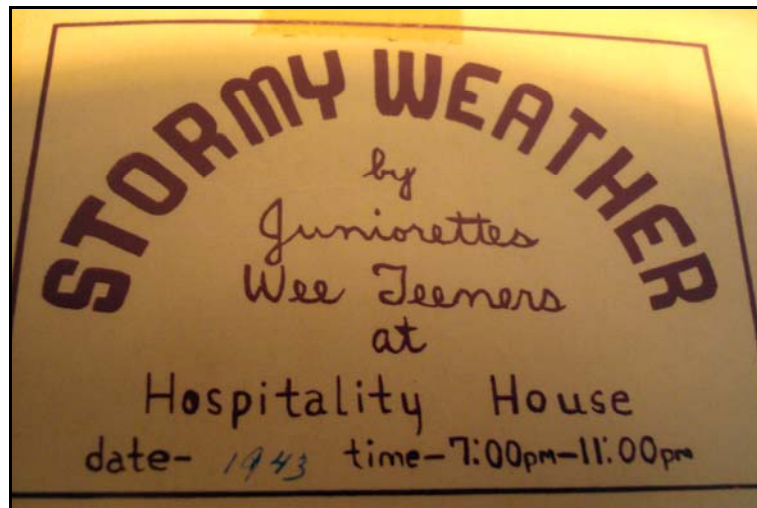 STORMY WEATHER
by
Juniorettes
Wee Teeners
at
Hospitality House
date- 1943 time-7:00pm-11:00pm